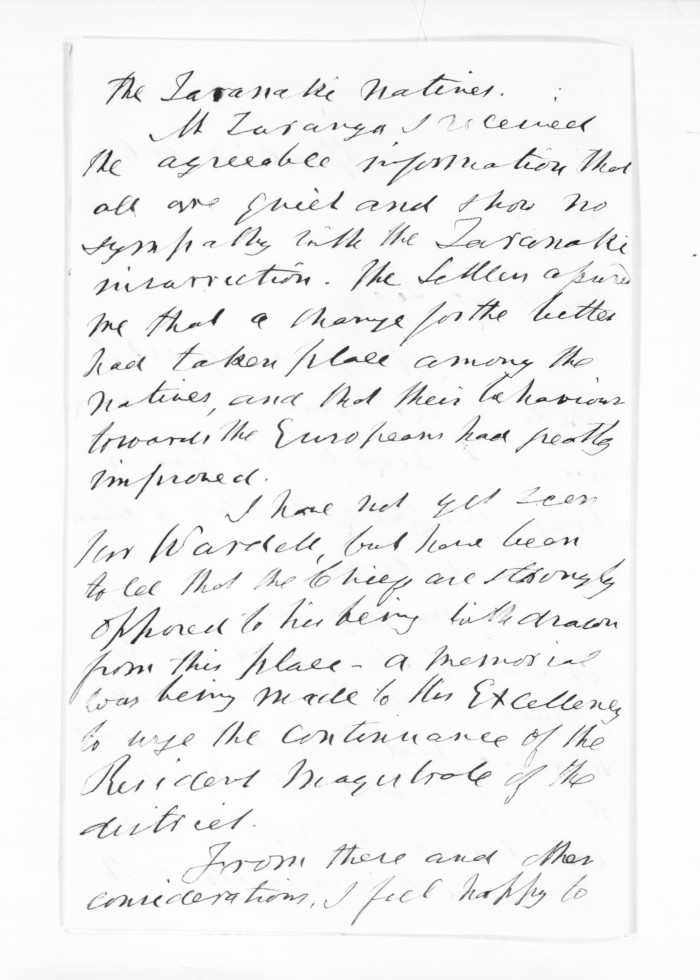 the Taranaki natives.
At Turanga I received
the agreeable information that
all are quiet and show no
sympathy with the Taranaki
insurrection. The Settlers assured
me that a change for the better
had taken place among the
natives, and that their behaviour
towards the Europeans had greatly
improved.
I have not yet seen
Wardell, but have been
told that the Chiefs are strongly
opposed to his being withdrawn
from this place - a memorial
was being made to His Excellency
to urge the continuance of the
Resident Magistrate of the
district.
From these and other
considerations, I feel happy to